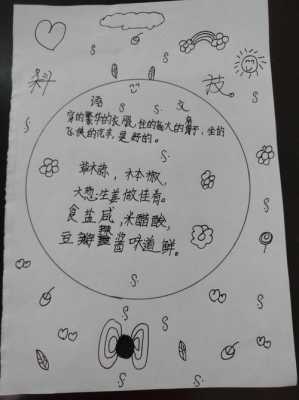 科 技
语 文
穿的繁华的衣服,住的高大的房子,坐的
飞快的汽车,是好的。
草木棕,木本椒,
大葱生姜做佳肴。
食盐咸,米醋酸,
豆瓣辣酱味道鲜。